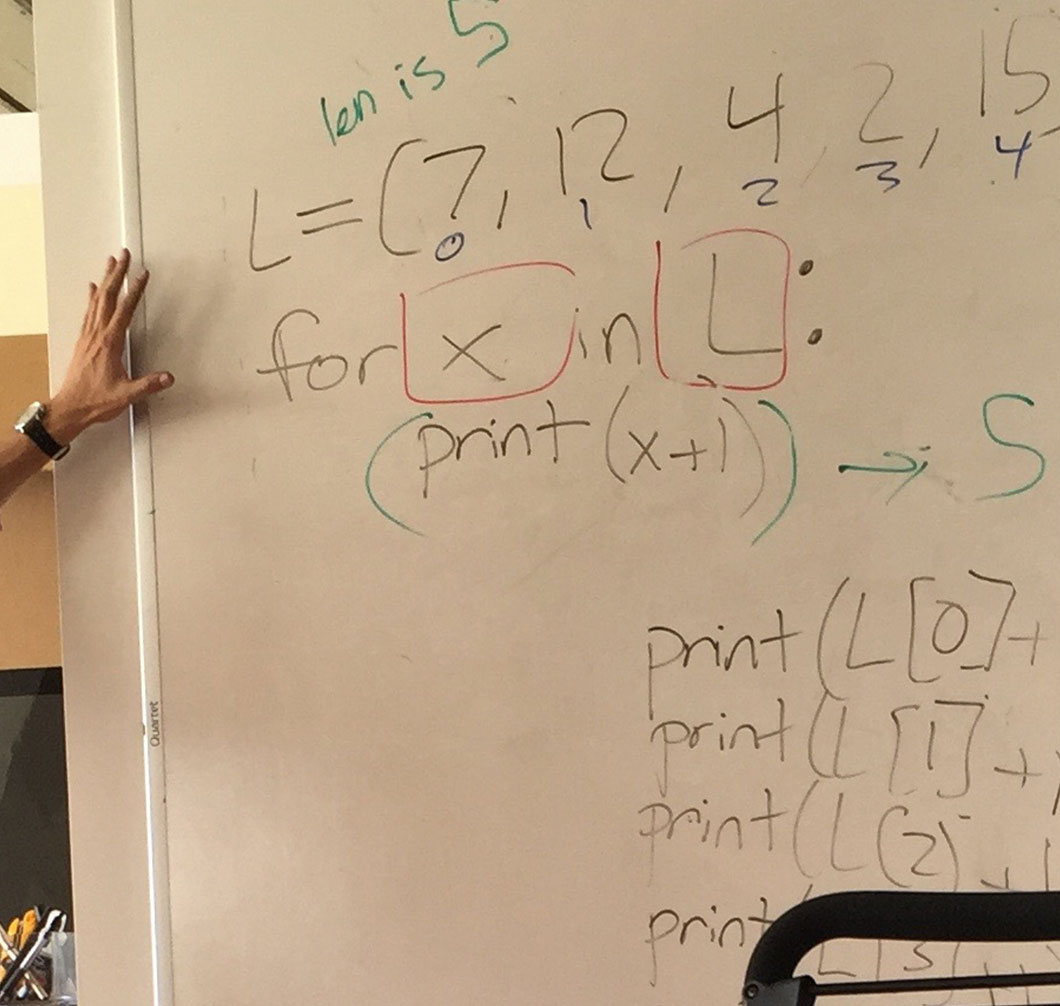 len is 5
L = [7, 12, 4, 2, 15
0 1 2 3 4
for x in L:
(print (x+1)) → 5
print (L [0] +
print (L [1] +
print (L (2) + 1
print
Quartet